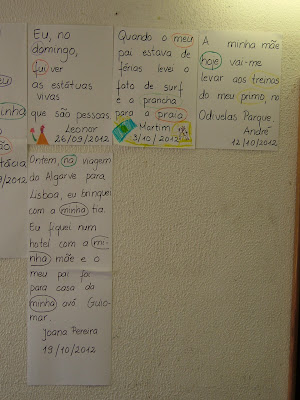 Eu, no
domingo,
fui ver
as estátuas
vivas
que são pessoas.
Leonor
26/09/2012
Quando o meu
pai estava de
férias levei o
fato de surf
e a prancha
para a praia.
Martim
3/10/2012
A minha mãe
hoje vai-me
levar aos treinos
do meu primo, no
Odivelas Parque.
André
12/10/2012
Ontem, na viagem
do Algarve para
Lisboa, eu brinquei
com a minha tia.
Eu fiquei num
hotel com a mi-
nha mãe e o
meu pai foi
para casa da
minha avó Guio-
mar.
Joana Pereira
19/10/2012
eu
minha
ão
/2012